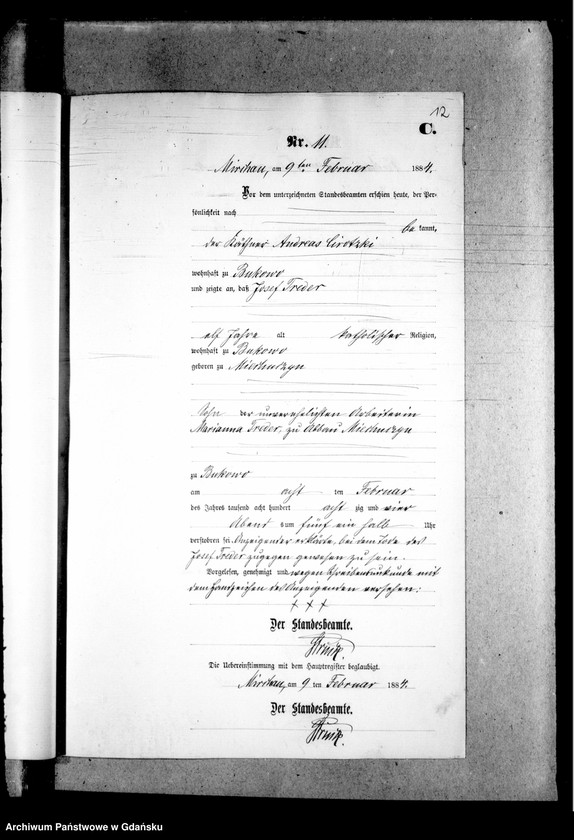 12
C.
Nr. 11.
Mirchau, am 9ten Februar 1884.
Vor dem unterzeichneten Standesbeamten erschien heute, der Per-
sönlichkeit nach
be kannt,
der Käthner Andreas Cirotzki
wohnhaft zu Bukowo
und zeigte an, daß Josef Treder
elf Jahre alt katholischer Religion,
wohnhaft zu Bukowo
geboren zu Miechuczyn
Sohn der unverehelichten Arbeiterin
Marianna Treder, zu Abbau Miechuczyn
zu Bukowo
am acht ten Februar
des Jahres tausend acht hundert acht zig und vier
Abend s um fünf ein halb Uhr
verstorben sei. Anzeigender erklärte, bei dem Tode des
Josef Treder zugegen gewesen zu sein.
Vorgelesen, genehmigt und wegen Schreibensunkunde mit
dem Handzeichen des Anzeigenden versehen:
+ + +
Der Standesbeamte.
Die Uebereinstimmung mit dem Hauptregister beglaubigt.
Mirchau, am 9 ten Februar 1884.
Der Standesbeamte.
Archiwum Państwowe w Gdańsku